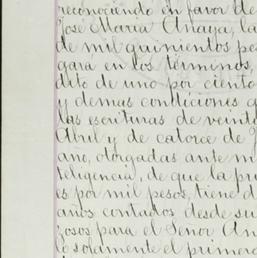 reconociendo en favor de
José María Anaya, la
de mil quinientos pe
gara en los términos,
dito de uno por ciento
y demas condiciones q
las escrituras de veint
Abril y de catorce de
ano, otorgadas ante m
teligencia, de que la pri
es por mil pesos, tiene d
años contados desde su
zosos para el Señor An
lo solamente el primero